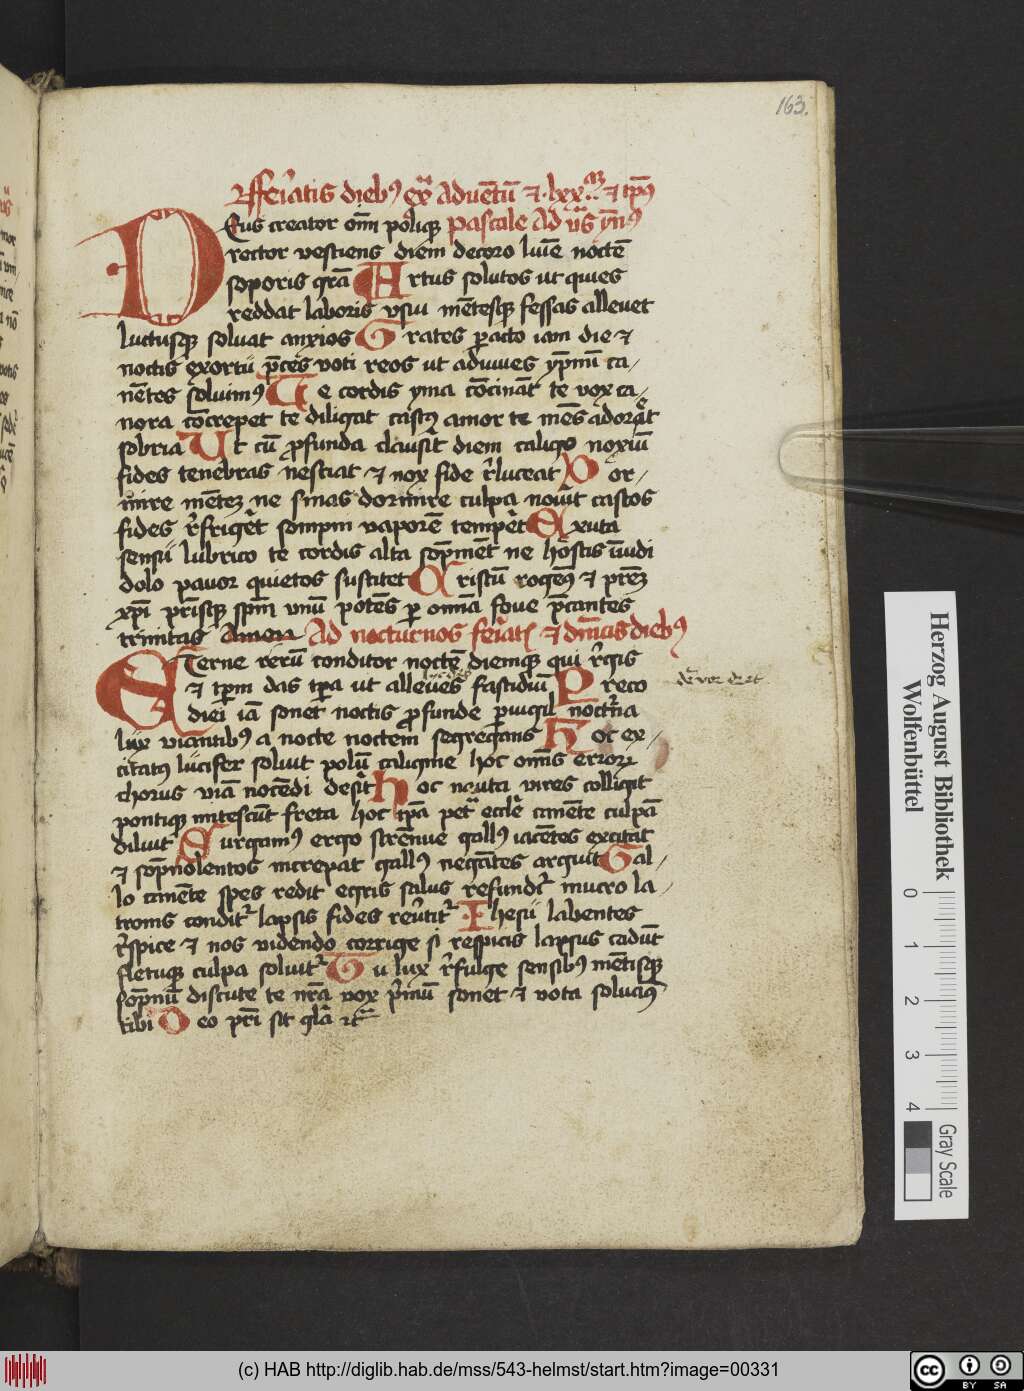 163.
fferiatis dieb9 ex̄ Aduētū ⁊ lxx. ⁊ tp̄s
Deus creator om̄ polique pascale Ad v̄s ȳn9
rector vestiens diem decoro luīe noctē
soporis grā Artus solutos ut quies
reddat laboris vsui mētesque fessas alleuet
luctusque soluat anxios Grates pacto iam die ⁊
noctis exortu p̄ces voti reos ut adiuues ympnū ca-
nētes soluim9 Te cordis yma cōcināt te vox ca-
nora cōcrepet te diligat castus amor te mēs adoret
sobria Ut cū profunda clauserit diem caligo noxiū
fides tenebras nesciat ⁊ nox fide reluceat Dor-
mire mētem ne sinas dormire culpa nouerit castos
fides refrigerēt sompni vaporē temperet Exuta
sensu lubrico te cordis alta sōpniēt ne hostis inuidi
dolo pauor quietos suscitet Cristū rogem9 ⁊ prēm
xp̄i pr̄isque sp̄m vnū potēs p omnia foue p̄cantes
trinitas Amen Ad nocturnos feriat ⁊ dnīcis dieb9
Eterne rerū conditor noctē diemque qui regis
⁊ tp̄m das tp̄a ut alleues fastidiū Preco
diei iā sonet noctis profunde peruigil nocturna
lux viantib9 a nocte noctem segregans Hoc ex-
citatus lucifer soluit polū caligine hoc omīs erroru
chorus viā nocēdi deserit Hoc nauta vires colligit
pontique mitescūt freta hoc ip̄a petra eccle canēte culpā
diluit Surgam9 ergo strēnue gall9 iacētes excitat
⁊ sōpnolentos increpat gall9 negātes arguit Gal-
lo canēte spes redit egris salus refundit mucro la-
tronis condit lapsis fides reuertit Ihesu labentes
respice ⁊ nos videndo corrige si respicis lapsus cadūt
fletuque culpa soluit Tu lux refulge sensib9 mētisque
sōpnū discute te nrā vox primū sonet ⁊ vota soluam9
tibi Deo pri sit glā ⁊c
Herzog August Bibliothek
Wolfenbüttel
0 1 2 3 4
Gray Scale
(c) HAB http://diglib.hab.de/mss/543-helmst/start.htm?image=00331
cc BY SA